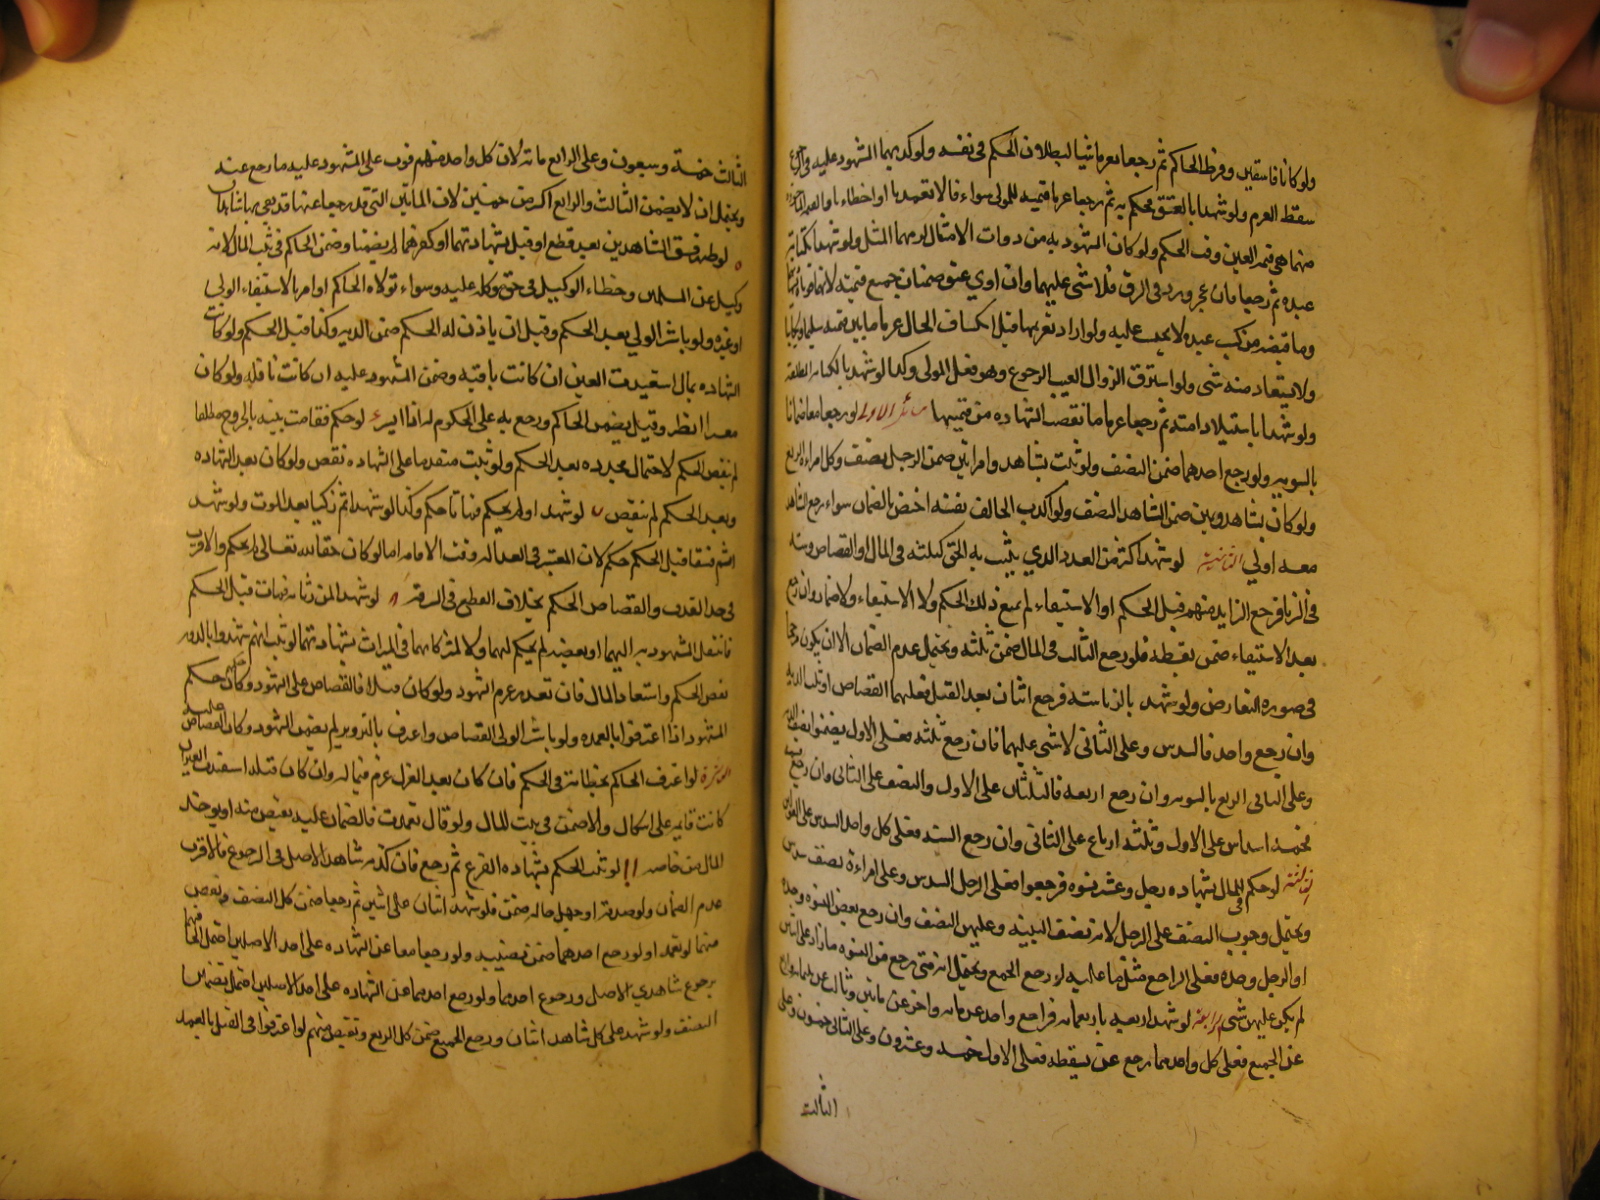 ولو كانا فاسقين وفرط الحاكم ثم رجعا لم يغرما شيا لبطلان الحكم فى نفسه ولو كذبهما المشهود عليه فى الرجوع
سقط الغرم ولو شهدا بالعتق فحكم به ثم رجعا غرما قيمته للمولى سواء قالا تعمدنا او اخطاءنا
منهما هى قيمة العين وقت الحكم ولو كان المشهود به من ذوات الامثال لزمهما المثل ولو شهدا بكتابة
عبده ثم رجعا فان عجز ورد فى الرق فلا شى عليهما وان ادى عتق ضمنا جميع قيمته لانهما
وما قبضه من كسب عبده لا يحسب عليه ولو اراد تغريمهما قبل انكشاف الحال غرما ما بين قيمته سليما ومكاتبا
ولا يستعاد منه شى ولو استرق لزوال العيب بالرجوع وهو فعل المولى وكذا لو شهدا بالكتابة المطلقة
ولو شهدا باستيلاد امته ثم رجعا غرما ما نقصت الشهاده من قيمتها مسائل الاولى لو رجعا معا ضمنا
بالسويه ولو رجع احدهما ضمن النصف ولو ثبت بشاهد وامراتين ضمن الرجل النصف وكل امراه الربع
ولو كان بشاهد ويمين ضمن الشاهد النصف ولو اكذب الحالف نفسه اختص بالضمان سواء رجع الشاهد
معه او لا الثانية لو شهد اكثر من العدد الذي يثبت به الحق كثلثه فى المال او القصاص وسته
فى الزنا فرجع الزايد منهم قبل الحكم او الاستيفاء لم يمنع ذلك الحكم ولا الاستيفاء ولا ضمان وان رجع
بعد الاستيفاء ضمن بقسطه فلو رجع الثالث فى المال ضمن ثلثه ويحتمل عدم الضمان الا ان يكون مرجحا
فى صوره التعارض ولو شهد بالزنا سته فرجع اثنان بعد القتل فعليهما القصاص او ثلث الديه
وان رجع واحد فالسدس وعلى الثانى لا شى عليهما فان رجع ثلثه فعلى الاول يضمنوا نصف الديه
وعلى الثانى الربع بالسويه وان رجع اربعه فالثلثان على الاول والنصف على الثانى وان رجع خمسه
فخمسه اسداس على الاول وثلثه ارباع على الثانى وان رجع السته فعلى كل واحد السدس على القولين
الثالثة لو حكم فى المال بشهاده رجل وعشر نسوه فرجعوا فعلى الرجل السدس وعلى كل امراءة نصف سدس
ويحتمل وجوب النصف على الرجل لانه نصف البينه وعليهن النصف وان رجع بعض النسوه وحده
او الرجل وحده فعلى الراجع مثل ما عليه لو رجع الجمع ويحتمل انه متى رجع من النسوه ما زاد على اثنتين
لم يكن عليهن شى الرابعة لو شهد اربعه باربعمايه فرجع واحد عن مايه واخر عن مايتين وثالث عن ثلثمايه والرابع
عن الجميع فعلى كل واحد مما رجع عنه بقسطه فعلى الاول خمسه وعشرون وعلى الثانى خمسون وعلى
الثالث
الثالث خمسة وسبعون وعلى الرابع مائة لان كل واحد منهم فوت على المشهود عليه ما رجع عنه
ويحتمل ان لا يضمن الثالث والرابع اكثر من خمسين لان المائتين التى قد رجعا عنها قد بقى بها شاهدان
ه لو ظهر فسق الشاهدين بعد قطع او قتل بشهادتهما او كفرهما لم يضمنا وضمن الحاكم فى بيت المال لانه
وكيل عن المسلمين وخطاء الوكيل فى حق موكله عليه وسواء تولاه الحاكم او امر بالاستيفاء الولى
او غيره ولو باشر الولي بعد الحكم وقبل ان ياذن له الحاكم ضمن الديه وكذا قبل الحكم ولو كانت
الشهاده بمال استعيدت العين ان كانت باقيه وضمن المشهود عليه ان كانت تالفه ولو كان
معسرا انظر وقيل يضمن الحاكم ورجع به على المحكوم له اذا ايسر و لو حكم فقامت بينه بالجروح مطلقا
لم ينقض الحكم لاحتمال تجدده بعد الحكم ولو ثبت متقدما على الشهاده نقض ولو كان بعد الشهاده
وبعد الحكم لم ينقض ز لو شهدا ولم يحكم فماتا حكم وكذا لو شهدا ثم زكيا بعد الموت ولو شهدا
ثم فسقا قبل الحكم حكم لان المعتبر فى العداله وقت الاقامه اما لو كان حقا لله تعالى لم يحكم والاقرب
فى حد القذف والقصاص الحكم بخلاف القطع فى السرقه ح لو شهدا لمن يرثانه فمات قبل الحكم
فانتقل المشهود به اليهما او بعضه لم يحكم لهما ولا لشركائهما فى الميراث بشهادتهما ط لو ثبت انهم شهدوا بالزور
نقض الحكم واستعاد المال فان تعذر غرم الشهود ولو كان قتلا فالقصاص على الشهود وكان حكمهم حكم
المشهود اذا اعترفوا بالعمد ولو باشر الولى القصاص واعترف بالتزوير لم يضمن الشهود وكان القصاص عليه
العاشرة لو اعترف الحاكم بخطائه فى الحكم فان كان بعد العزل غرم فى ماله وان كان قبله استعيدت العين ان
كانت قايمه على اشكال والا ضمن فى بيت المال ولو قال تعمدت فالضمان عليه يقتص منه او يوخذ
المال من خاصه ١١ لو ثبت الحكم بشهاده الفرع ثم رجع فان كذبه شاهد الاصل فى الرجوع فالاقرب
عدم الضمان ولو صدقه او جهل حاله ضمن فلو شهد اثنان على اثنين ثم رجعا ضمن كل النصف ويقتص
منهما لو تعمدا ولو رجع احدهما ضمن نصيبه ولو رجعا معا عن الشهاده على احد الاصلين احتمل الحاقهما
برجوع شاهدي الاصل ورجوع احدهما ولو رجع احدهما عن الشهاده على احد الاصلين احتمل تضمين
النصف ولو شهد على كل شاهد اثنان ورجع الجميع ضمن كل الربع ويقتص منهم لو اعترفوا فى القتل بالعمد